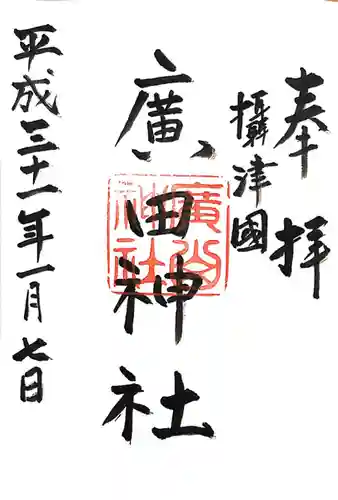 奉拝
攝津國
廣田神社
廣田神社
平成三十一年一月七日